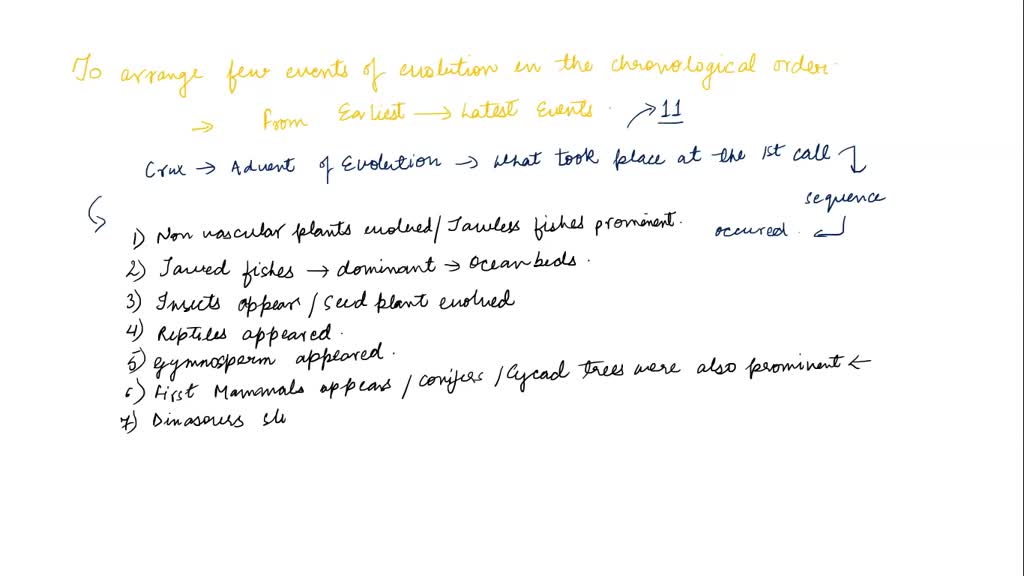 To arrange few events of evolution in the chronological order.
→ From Earliest → Latest Events. → 11
Crux → Advent of Evolution → What took place at the 1st call
sequence
occured.
1) Non vascular plants evolved / Jawless fishes prominent.
2) Jawed fishes → dominant → Ocean beds.
3) Insects appear / Seed plant evolved
4) Reptiles appeared.
5) Gymnosperm appeared.
6) First Mammals appears / conifers / Cycad trees were also prominent ←
7) Dinasours sl